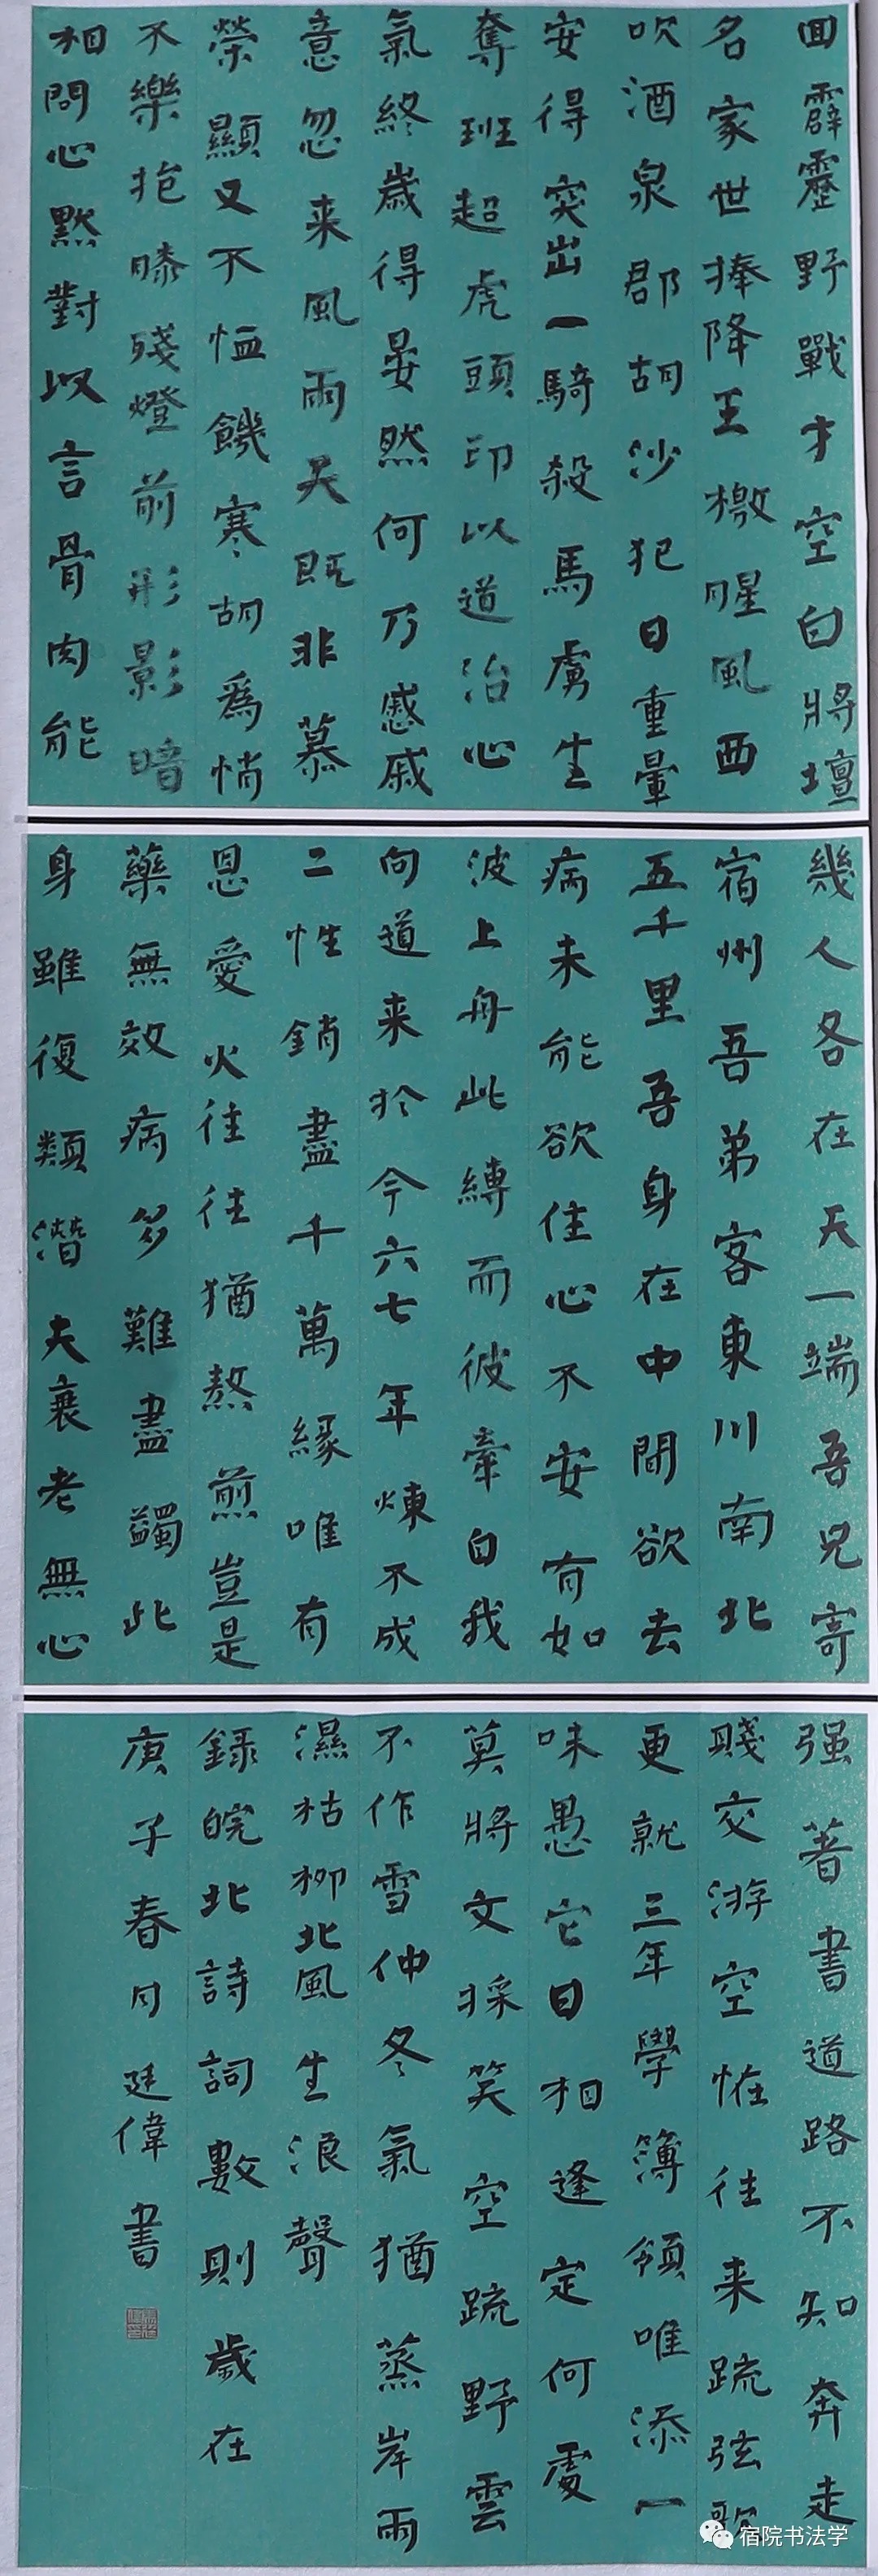 回霹靂野戰才空白將壇
名家世捧降王檄腥風西
吹酒泉郡胡沙犯日重暈
安得突出一騎殺馬虜生
奪班超虎頭印以道治心
氣終歲得晏然何乃戚戚
意忽来風雨天既非慕
榮顯又不恤饑寒胡為悄
不樂抱膝殘燈前形影暗
相問心默對以言骨肉能
幾人各在天一端吾兄寄
宿州吾弟客東川南北
五千里吾身在中間欲去
病未能欲住心不安有如
波上舟此縛而彼牽自我
向道来於今六七年煉不成
二性銷盡千萬緣唯有
恩愛火往往猶熬煎豈是
藥無效病多難盡蠲此
身雖復類潛夫衰老無心
强著書道路不知奔走
賤交游空怪往来疏弦歌
更就三年學簿領唯添一
味愚它日相逢定何處
莫將文採笑空疏野雲
不作雪仲冬氣猶蒸岸雨
濕枯柳北風生浪聲
錄皖北詩詞數則歲在
庚子春月廷偉書
宿院书法学